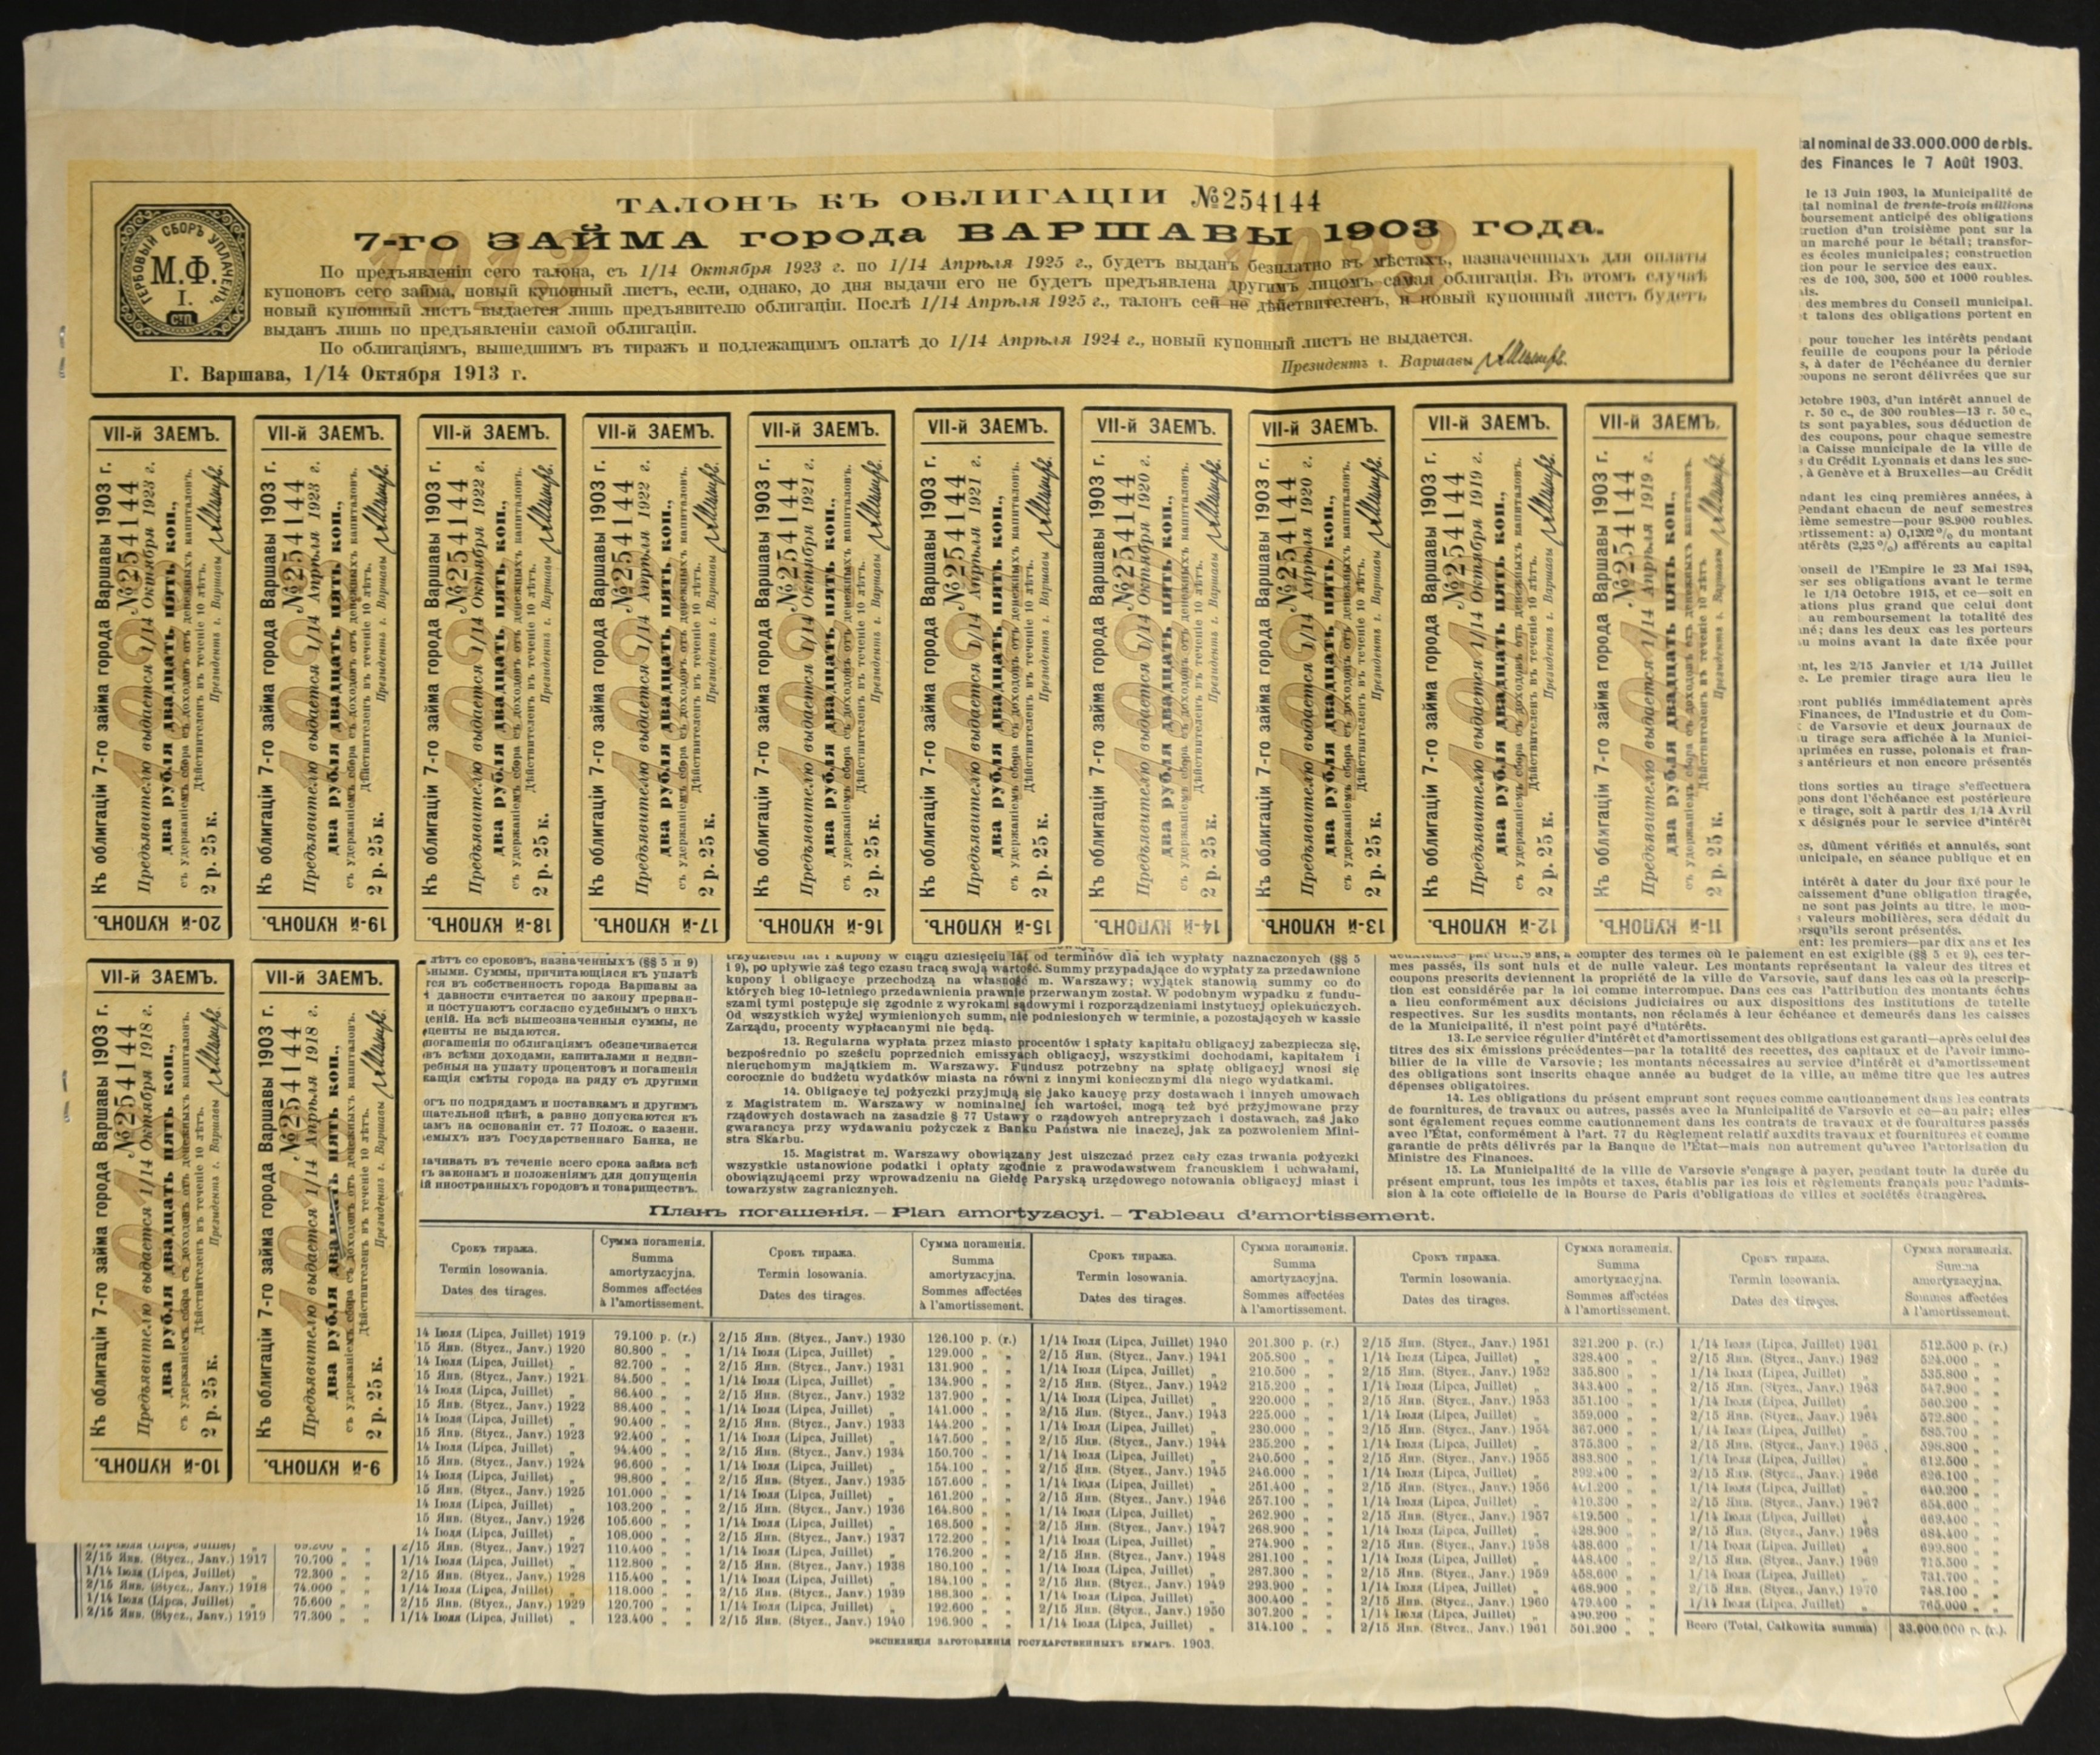 al nominal de 33.000.000 de rbls.
des Finances le 7 Août 1903.
le 13 Juin 1903, la Municipalité de
tal nominal de trente-trois millions
boursement anticipé des obligations
ruction d'un troisième pont sur la
un marché pour le bétail; transfor-
es écoles municipales; construction
ion pour le service des eaux.
es de 100, 300, 500 et 1000 roubles.
des membres du Conseil municipal.
t talons des obligations portent en
pour toucher les intérêts pendant
feuille de coupons pour la période
s, à dater de l'échéance du dernier
coupons ne seront délivrées que sur
Octobre 1903, d'un intérêt annuel de
r. 50 c., de 300 roubles—13 r. 50 c.,
ts sont payables, sous déduction de
des coupons, pour chaque semestre
a Caisse municipale de la ville de
du Crédit Lyonnais et dans les suc-
, à Genève et à Bruxelles—au Crédit
ndant les cinq premières années, à
Pendant chacun de neuf semestres
ième semestre—pour 98.900 roubles.
rtissement: a) 0,1202% du montant
ntérêts (2,25%) afférents au capital
onseil de l'Empire le 23 Mai 1894,
ser ses obligations avant le terme
le 1/14 Octobre 1915, et ce—soit en
ations plus grand que celui dont
au remboursement la totalité des
né; dans les deux cas les porteurs
u moins avant la date fixée pour
nt, les 2/15 Janvier et 1/14 Juillet
e. Le premier tirage aura lieu le
ront publiés immédiatement après
Finances, de l'Industrie et du Com-
de Varsovie et deux journaux de
u tirage sera affichée à la Munici-
mprimées en russe, polonais et fran-
s antérieurs et non encore présentés
tions sorties au tirage s'effectuera
pons dont l'échéance est postérieure
e tirage, soit à partir des 1/14 Avril
x désignés pour le service d'intérêt
es, dûment vérifiés et annulés, sont
unicipale, en séance publique et en
intérêt à dater du jour fixé pour le
caissement d'une obligation tiragée,
ne sont pas joints au titre, le mon-
valeurs mobilières, sera déduit du
orsqu'ils seront présentés.
ent: les premiers—par dix ans et les
ТАЛОНЪ КЪ ОБЛИГАЦІИ №254144
7-го ЗАЙМА города ВАРШАВЫ 1903 года.
1913 1923
ГЕРБОВЫЙ СБОРЪ УПЛАЧЕНЪ.
М.Ф.
I.
СТП.
По предъявленіи сего талона, съ 1/14 Октября 1923 г. по 1/14 Апрѣля 1925 г., будетъ выданъ безплатно въ мѣстахъ, назначенныхъ для оплаты
купоновъ сего займа, новый купонный листъ, если, однако, до дня выдачи его не будетъ предъявлена другимъ лицомъ самая облигація. Въ этомъ случаѣ
новый купонный листъ выдается лишь предъявителю облигаціи. Послѣ 1/14 Апрѣля 1925 г., талонъ сей не дѣйствителенъ, и новый купонный листъ будетъ
выданъ лишь по предъявленіи самой облигаціи.
По облигаціямъ, вышедшимъ въ тиражъ и подлежащимъ оплатѣ до 1/14 Апрѣля 1924 г., новый купонный листъ не выдается.
Президентъ г. Варшавы
Г. Варшава, 1/14 Октября 1913 г.
VII-й ЗАЕМЪ.
Къ облигаціи 7-го займа города Варшавы 1903 г.
№254144
Предъявителю выдается 1/14 Октября 1923 г.
два рубля двадцать пять коп.,
съ удержаніемъ сбора съ доходовъ отъ денежныхъ капиталовъ.
Дѣйствителенъ въ теченіе 10 лѣтъ.
2 р. 25 к. Президентъ г. Варшавы
20-й КУПОНЪ.
VII-й ЗАЕМЪ.
Къ облигаціи 7-го займа города Варшавы 1903 г.
№254144
Предъявителю выдается 1/14 Апрѣля 1923 г.
два рубля двадцать пять коп.,
съ удержаніемъ сбора съ доходовъ отъ денежныхъ капиталовъ.
Дѣйствителенъ въ теченіе 10 лѣтъ.
2 р. 25 к. Президентъ г. Варшавы
19-й КУПОНЪ.
VII-й ЗАЕМЪ.
Къ облигаціи 7-го займа города Варшавы 1903 г.
№254144
Предъявителю выдается 1/14 Октября 1922 г.
два рубля двадцать пять коп.,
съ удержаніемъ сбора съ доходовъ отъ денежныхъ капиталовъ.
Дѣйствителенъ въ теченіе 10 лѣтъ.
2 р. 25 к. Президентъ г. Варшавы
18-й КУПОНЪ.
VII-й ЗАЕМЪ.
Къ облигаціи 7-го займа города Варшавы 1903 г.
№254144
Предъявителю выдается 1/14 Апрѣля 1922 г.
два рубля двадцать пять коп.,
съ удержаніемъ сбора съ доходовъ отъ денежныхъ капиталовъ.
Дѣйствителенъ въ теченіе 10 лѣтъ.
2 р. 25 к. Президентъ г. Варшавы
17-й КУПОНЪ.
VII-й ЗАЕМЪ.
Къ облигаціи 7-го займа города Варшавы 1903 г.
№254144
Предъявителю выдается 1/14 Октября 1921 г.
два рубля двадцать пять коп.,
съ удержаніемъ сбора съ доходовъ отъ денежныхъ капиталовъ.
Дѣйствителенъ въ теченіе 10 лѣтъ.
2 р. 25 к. Президентъ г. Варшавы
16-й КУПОНЪ.
VII-й ЗАЕМЪ.
Къ облигаціи 7-го займа города Варшавы 1903 г.
№254144
Предъявителю выдается 1/14 Апрѣля 1921 г.
два рубля двадцать пять коп.,
съ удержаніемъ сбора съ доходовъ отъ денежныхъ капиталовъ.
Дѣйствителенъ въ теченіе 10 лѣтъ.
2 р. 25 к. Президентъ г. Варшавы
15-й КУПОНЪ.
VII-й ЗАЕМЪ.
Къ облигаціи 7-го займа города Варшавы 1903 г.
№254144
Предъявителю выдается 1/14 Октября 1920 г.
два рубля двадцать пять коп.,
съ удержаніемъ сбора съ доходовъ отъ денежныхъ капиталовъ.
Дѣйствителенъ въ теченіе 10 лѣтъ.
2 р. 25 к. Президентъ г. Варшавы
14-й КУПОНЪ.
VII-й ЗАЕМЪ.
Къ облигаціи 7-го займа города Варшавы 1903 г.
№254144
Предъявителю выдается 1/14 Апрѣля 1920 г.
два рубля двадцать пять коп.,
съ удержаніемъ сбора съ доходовъ отъ денежныхъ капиталовъ.
Дѣйствителенъ въ теченіе 10 лѣтъ.
2 р. 25 к. Президентъ г. Варшавы
13-й КУПОНЪ.
VII-й ЗАЕМЪ.
Къ облигаціи 7-го займа города Варшавы 1903 г.
№254144
Предъявителю выдается 1/14 Октября 1919 г.
два рубля двадцать пять коп.,
съ удержаніемъ сбора съ доходовъ отъ денежныхъ капиталовъ.
Дѣйствителенъ въ теченіе 10 лѣтъ.
2 р. 25 к. Президентъ г. Варшавы
12-й КУПОНЪ.
VII-й ЗАЕМЪ.
Къ облигаціи 7-го займа города Варшавы 1903 г.
№254144
Предъявителю выдается 1/14 Апрѣля 1919 г.
два рубля двадцать пять коп.,
съ удержаніемъ сбора съ доходовъ отъ денежныхъ капиталовъ.
Дѣйствителенъ въ теченіе 10 лѣтъ.
2 р. 25 к. Президентъ г. Варшавы
11-й КУПОНЪ.
VII-й ЗАЕМЪ.
Къ облигаціи 7-го займа города Варшавы 1903 г.
№254144
Предъявителю выдается 1/14 Октября 1918 г.
два рубля двадцать пять коп.,
съ удержаніемъ сбора съ доходовъ отъ денежныхъ капиталовъ.
Дѣйствителенъ въ теченіе 10 лѣтъ.
2 р. 25 к. Президентъ г. Варшавы
10-й КУПОНЪ.
VII-й ЗАЕМЪ.
Къ облигаціи 7-го займа города Варшавы 1903 г.
№254144
Предъявителю выдается 1/14 Апрѣля 1918 г.
два рубля двадцать пять коп.,
съ удержаніемъ сбора съ доходовъ отъ денежныхъ капиталовъ.
Дѣйствителенъ въ теченіе 10 лѣтъ.
2 р. 25 к. Президентъ г. Варшавы
9-й КУПОНЪ.
лѣтъ со сроковъ, назначенныхъ (§§ 5 и 9)
ными. Суммы, причитающіяся къ уплатѣ
тся въ собственность города Варшавы за
давности считается по закону прерван-
и поступаютъ согласно судебнымъ о нихъ
деній. На всѣ вышеозначенныя суммы, не
центы не выдаются.
погашенія по облигаціямъ обезпечивается
въ всѣми доходами, капиталами и недви-
ребныя на уплату процентовъ и погашенія
кащія смѣты города на ряду съ другими
огъ по подрядамъ и поставкамъ и другимъ
щательной цѣнѣ, а равно допускаются къ
амъ на основаніи ст. 77 Полож. о казенн.
емыхъ изъ Государственнаго Банка, не
лачивать въ теченіе всего срока займа всѣ
ъ законамъ и положеніямъ для допущенія
ій иностранныхъ городовъ и товариществъ.
trzydziestu lat i kupony w ciągu dziesięciu lat od terminów dla ich wypłaty naznaczonych (§§ 5
i 9), po upływie zaś tego czasu tracą swoją wartość. Summy przypadające do wypłaty za przedawnione
kupony i obligacye przechodzą na własność m. Warszawy; wyjątek stanowią summy co do
których bieg 10-letniego przedawnienia prawnie przerwanym został. W podobnym wypadku z fundu-
szami tymi postępuje się zgodnie z wyrokami sądowymi i rozporządzeniami instytucyj opiekuńczych.
Od wszystkich wyżej wymienionych summ, nie podniesionych w terminie, a pozostających w kassie
Zarządu, procenty wypłacanymi nie będą.
13. Regularna wypłata przez miasto procentów i spłaty kapitału obligacyj zabezpiecza się,
bezpośrednio po sześciu poprzednich emissyach obligacyj, wszystkimi dochodami, kapitałem i
nieruchomym majątkiem m. Warszawy. Fundusz potrzebny na spłatę obligacyj wnosi się
corocznie do budżetu wydatków miasta na równi z innymi koniecznymi dla niego wydatkami.
14. Obligacye tej pożyczki przyjmują się jako kaucye przy dostawach i innych umowach
z Magistratem m. Warszawy w nominalnej ich wartości, mogą też być przyjmowane przy
rządowych dostawach na zasadzie § 77 Ustawy o rządowych antrepryzach i dostawach, zaś jako
gwarancya przy wydawaniu pożyczek z Banku Państwa nie inaczej, jak za pozwoleniem Mini-
stra Skarbu.
15. Magistrat m. Warszawy obowiązany jest uiszczać przez cały czas trwania pożyczki
wszystkie ustanowione podatki i opłaty zgodnie z prawodawstwem francuskiem i uchwałami,
obowiązującemi przy wprowadzeniu na Giełdę Paryską urzędowego notowania obligacyj miast i
towarzystw zagranicznych.
ans, à compter des termes où le paiement en est exigible (§§ 5 et 9), ces ter-
mes passés, ils sont nuls et de nulle valeur. Les montants représentant la valeur des titres et
coupons prescrits deviennent la propriété de la ville de Varsovie, sauf dans les cas où la prescrip-
tion est considérée par la loi comme interrompue. Dans ces cas l'attribution des montants échus
a lieu conformément aux décisions judiciaires ou aux dispositions des institutions de tutelle
respectives. Sur les susdits montants, non réclamés à leur échéance et demeurés dans les caisses
de la Municipalité, il n'est point payé d'intérêts.
13. Le service régulier d'intérêt et d'amortissement des obligations est garanti—après celui des
titres des six émissions précédentes—par la totalité des recettes, des capitaux et de l'avoir immo-
bilier de la ville de Varsovie; les montants nécessaires au service d'intérêt et d'amortissement
des obligations sont inscrits chaque année au budget de la ville, au même titre que les autres
dépenses obligatoires.
14. Les obligations du présent emprunt sont reçues comme cautionnement dans les contrats
de fournitures, de travaux ou autres, passés avec la Municipalité de Varsovie et ce—au pair; elles
sont également reçues comme cautionnement dans les contrats de travaux et de fournitures passés
avec l'État, conformément à l'art. 77 du Règlement relatif auxdits travaux et fournitures et comme
garantie de prêts délivrés par la Banque de l'État—mais non autrement qu'avec l'actorisation du
Ministre des Finances.
15. La Municipalité de la ville de Varsovie s'engage à payer, pendant toute la durée du
présent emprunt, tous les impôts et taxes, établis par les lois et règlements français pour l'admis-
sion à la cote officielle de la Bourse de Paris d'obligations de villes et sociétés étrangères.
Планъ погашенія. – Plan amortyzacyi. – Tableau d'amortissement.
Срокъ тиража.
Termin losowania.
Dates des tirages.
Сумма погашенія.
Summa
amortyzacyjna.
Sommes affectées
à l'amortissement.
Срокъ тиража.
Termin losowania.
Dates des tirages.
Сумма погашенія.
Summa
amortyzacyjna.
Sommes affectées
à l'amortissement.
Срокъ тиража.
Termin losowania.
Dates des tirages.
Сумма погашенія.
Summa
amortyzacyjna.
Sommes affectées
à l'amortissement.
Срокъ тиража.
Termin losowania.
Dates des tirages.
Сумма погашенія.
Summa
amortyzacyjna.
Sommes affectées
à l'amortissement.
Срокъ тиража.
Termin losowania.
Dates des tirages.
Сумма погашенія.
Summa
amortyzacyjna.
Sommes affectées
à l'amortissement.
1/14 Іюля (Lipca, Juillet) „ 69.200 „ „
2/15 Янв. (Stycz., Janv.) 1917 70.700 „ „
1/14 Іюля (Lipca, Juillet) „ 72.300 „ „
2/15 Янв. (Stycz., Janv.) 1918 74.000 „ „
1/14 Іюля (Lipca, Juillet) „ 75.600 „ „
2/15 Янв. (Stycz., Janv.) 1919 77.300 „ „
14 Іюля (Lipca, Juillet) 1919 79.100 р. (r.)
15 Янв. (Stycz., Janv.) 1920 80.800 „ „
14 Іюля (Lipca, Juillet) „ 82.700 „ „
15 Янв. (Stycz., Janv.) 1921 84.500 „ „
14 Іюля (Lipca, Juillet) „ 86.400 „ „
15 Янв. (Stycz., Janv.) 1922 88.400 „ „
14 Іюля (Lipca, Juillet) „ 90.400 „ „
15 Янв. (Stycz., Janv.) 1923 92.400 „ „
14 Іюля (Lipca, Juillet) „ 94.400 „ „
15 Янв. (Stycz., Janv.) 1924 96.600 „ „
14 Іюля (Lipca, Juillet) „ 98.800 „ „
15 Янв. (Stycz., Janv.) 1925 101.000 „ „
14 Іюля (Lipca, Juillet) „ 103.200 „ „
15 Янв. (Stycz., Janv.) 1926 105.600 „ „
14 Іюля (Lipca, Juillet) „ 108.000 „ „
2/15 Янв. (Stycz., Janv.) 1927 110.400 „ „
1/14 Іюля (Lipca, Juillet) „ 112.800 „ „
2/15 Янв. (Stycz., Janv.) 1928 115.400 „ „
1/14 Іюля (Lipca, Juillet) „ 118.000 „ „
2/15 Янв. (Stycz., Janv.) 1929 120.700 „ „
1/14 Іюля (Lipca, Juillet) „ 123.400 „ „
2/15 Янв. (Stycz., Janv.) 1930 126.100 р. (r.)
1/14 Іюля (Lipca, Juillet) „ 129.000 „ „
2/15 Янв. (Stycz., Janv.) 1931 131.900 „ „
1/14 Іюля (Lipca, Juillet) „ 134.900 „ „
2/15 Янв. (Stycz., Janv.) 1932 137.900 „ „
1/14 Іюля (Lipca, Juillet) „ 141.000 „ „
2/15 Янв. (Stycz., Janv.) 1933 144.200 „ „
1/14 Іюля (Lipca, Juillet) „ 147.500 „ „
2/15 Янв. (Stycz., Janv.) 1934 150.700 „ „
1/14 Іюля (Lipca, Juillet) „ 154.100 „ „
2/15 Янв. (Stycz., Janv.) 1935 157.600 „ „
1/14 Іюля (Lipca, Juillet) „ 161.200 „ „
2/15 Янв. (Stycz., Janv.) 1936 164.800 „ „
1/14 Іюля (Lipca, Juillet) „ 168.500 „ „
2/15 Янв. (Stycz., Janv.) 1937 172.200 „ „
1/14 Іюля (Lipca, Juillet) „ 176.200 „ „
2/15 Янв. (Stycz., Janv.) 1938 180.100 „ „
1/14 Іюля (Lipca, Juillet) „ 184.100 „ „
2/15 Янв. (Stycz., Janv.) 1939 188.300 „ „
1/14 Іюля (Lipca, Juillet) „ 192.600 „ „
2/15 Янв. (Stycz., Janv.) 1940 196.900 „ „
1/14 Іюля (Lipca, Juillet) 1940 201.300 р. (r.)
2/15 Янв. (Stycz., Janv.) 1941 205.800 „ „
1/14 Іюля (Lipca, Juillet) „ 210.500 „ „
2/15 Янв. (Stycz., Janv.) 1942 215.200 „ „
1/14 Іюля (Lipca, Juillet) „ 220.000 „ „
2/15 Янв. (Stycz., Janv.) 1943 225.000 „ „
1/14 Іюля (Lipca, Juillet) „ 230.000 „ „
2/15 Янв. (Stycz., Janv.) 1944 235.200 „ „
1/14 Іюля (Lipca, Juillet) „ 240.500 „ „
2/15 Янв. (Stycz., Janv.) 1945 246.000 „ „
1/14 Іюля (Lipca, Juillet) „ 251.400 „ „
2/15 Янв. (Stycz., Janv.) 1946 257.100 „ „
1/14 Іюля (Lipca, Juillet) „ 262.900 „ „
2/15 Янв. (Stycz., Janv.) 1947 268.900 „ „
1/14 Іюля (Lipca, Juillet) „ 274.900 „ „
2/15 Янв. (Stycz., Janv.) 1948 281.100 „ „
1/14 Іюля (Lipca, Juillet) „ 287.300 „ „
2/15 Янв. (Stycz., Janv.) 1949 293.900 „ „
1/14 Іюля (Lipca, Juillet) „ 300.400 „ „
2/15 Янв. (Stycz., Janv.) 1950 307.200 „ „
1/14 Іюля (Lipca, Juillet) „ 314.100 „ „
2/15 Янв. (Stycz., Janv.) 1951 321.200 р. (r.)
1/14 Іюля (Lipca, Juillet) „ 328.400 „ „
2/15 Янв. (Stycz., Janv.) 1952 335.800 „ „
1/14 Іюля (Lipca, Juillet) „ 343.400 „ „
2/15 Янв. (Stycz., Janv.) 1953 351.100 „ „
1/14 Іюля (Lipca, Juillet) „ 359.000 „ „
2/15 Янв. (Stycz., Janv.) 1954 367.000 „ „
1/14 Іюля (Lipca, Juillet) „ 375.300 „ „
2/15 Янв. (Stycz., Janv.) 1955 383.800 „ „
1/14 Іюля (Lipca, Juillet) „ 392.400 „ „
2/15 Янв. (Stycz., Janv.) 1956 401.200 „ „
1/14 Іюля (Lipca, Juillet) „ 410.300 „ „
2/15 Янв. (Stycz., Janv.) 1957 419.500 „ „
1/14 Іюля (Lipca, Juillet) „ 428.900 „ „
2/15 Янв. (Stycz., Janv.) 1958 438.600 „ „
1/14 Іюля (Lipca, Juillet) „ 448.400 „ „
2/15 Янв. (Stycz., Janv.) 1959 458.600 „ „
1/14 Іюля (Lipca, Juillet) „ 468.900 „ „
2/15 Янв. (Stycz., Janv.) 1960 479.400 „ „
1/14 Іюля (Lipca, Juillet) „ 490.200 „ „
2/15 Янв. (Stycz., Janv.) 1961 501.200 „ „
1/14 Іюля (Lipca, Juillet) 1961 512.500 р. (r.)
2/15 Янв. (Stycz., Janv.) 1962 524.000 „ „
1/14 Іюля (Lipca, Juillet) „ 535.800 „ „
2/15 Янв. (Stycz., Janv.) 1963 547.900 „ „
1/14 Іюля (Lipca, Juillet) „ 560.200 „ „
2/15 Янв. (Stycz., Janv.) 1964 572.800 „ „
1/14 Іюля (Lipca, Juillet) „ 585.700 „ „
2/15 Янв. (Stycz., Janv.) 1965 598.800 „ „
1/14 Іюля (Lipca, Juillet) „ 612.500 „ „
2/15 Янв. (Stycz., Janv.) 1966 626.100 „ „
1/14 Іюля (Lipca, Juillet) „ 640.200 „ „
2/15 Янв. (Stycz., Janv.) 1967 654.600 „ „
1/14 Іюля (Lipca, Juillet) „ 669.400 „ „
2/15 Янв. (Stycz., Janv.) 1968 684.400 „ „
1/14 Іюля (Lipca, Juillet) „ 699.800 „ „
2/15 Янв. (Stycz., Janv.) 1969 715.500 „ „
1/14 Іюля (Lipca, Juillet) „ 731.700 „ „
2/15 Янв. (Stycz., Janv.) 1970 748.100 „ „
1/14 Іюля (Lipca, Juillet) „ 765.000 „ „
Всего (Total, Całkowita summa) 33.000.000 р. (r.).
ЭКСПЕДИЦІЯ ЗАГОТОВЛЕНІЯ ГОСУДАРСТВЕННЫХЪ БУМАГЪ. 1903.